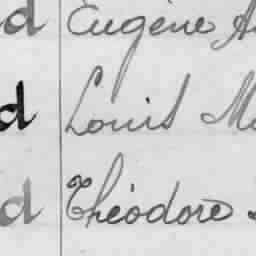 d Eugène A
d Louis M
d Théodore